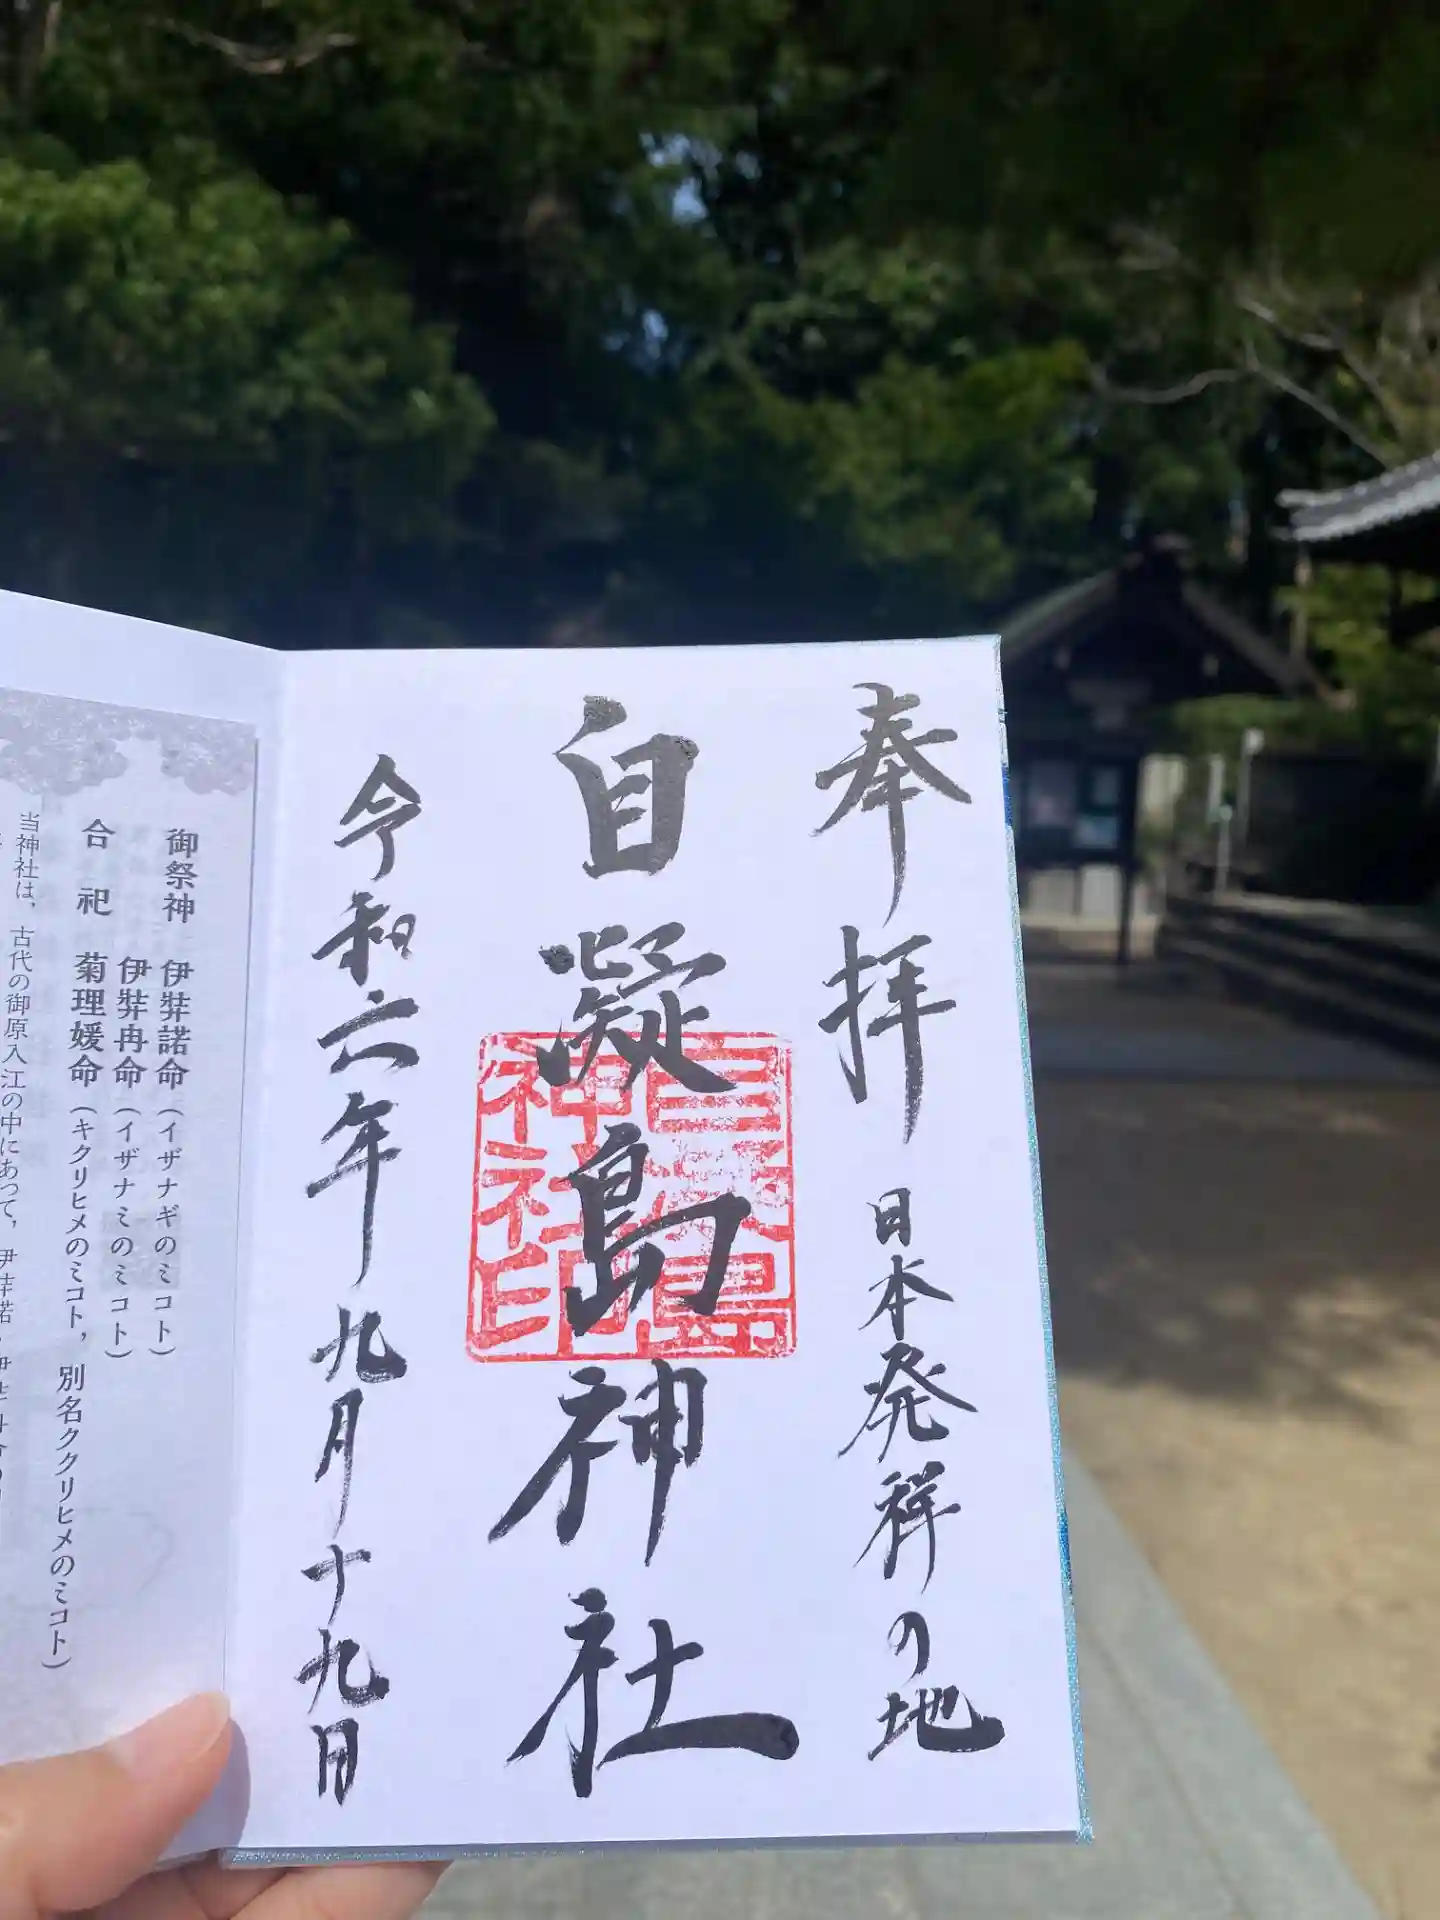 奉拝 日本発祥の地
自凝島神社
自凝島神社印
令和六年九月十九日
御祭神 伊弉諾命(イザナギのミコト)
伊弉冉命(イザナミのミコト)
合祀 菊理媛命(キクリヒメのミコト，別名ククリヒメのミコト)
当神社は，古代の御原入江の中にあって，伊弉諾・伊弉冉命の